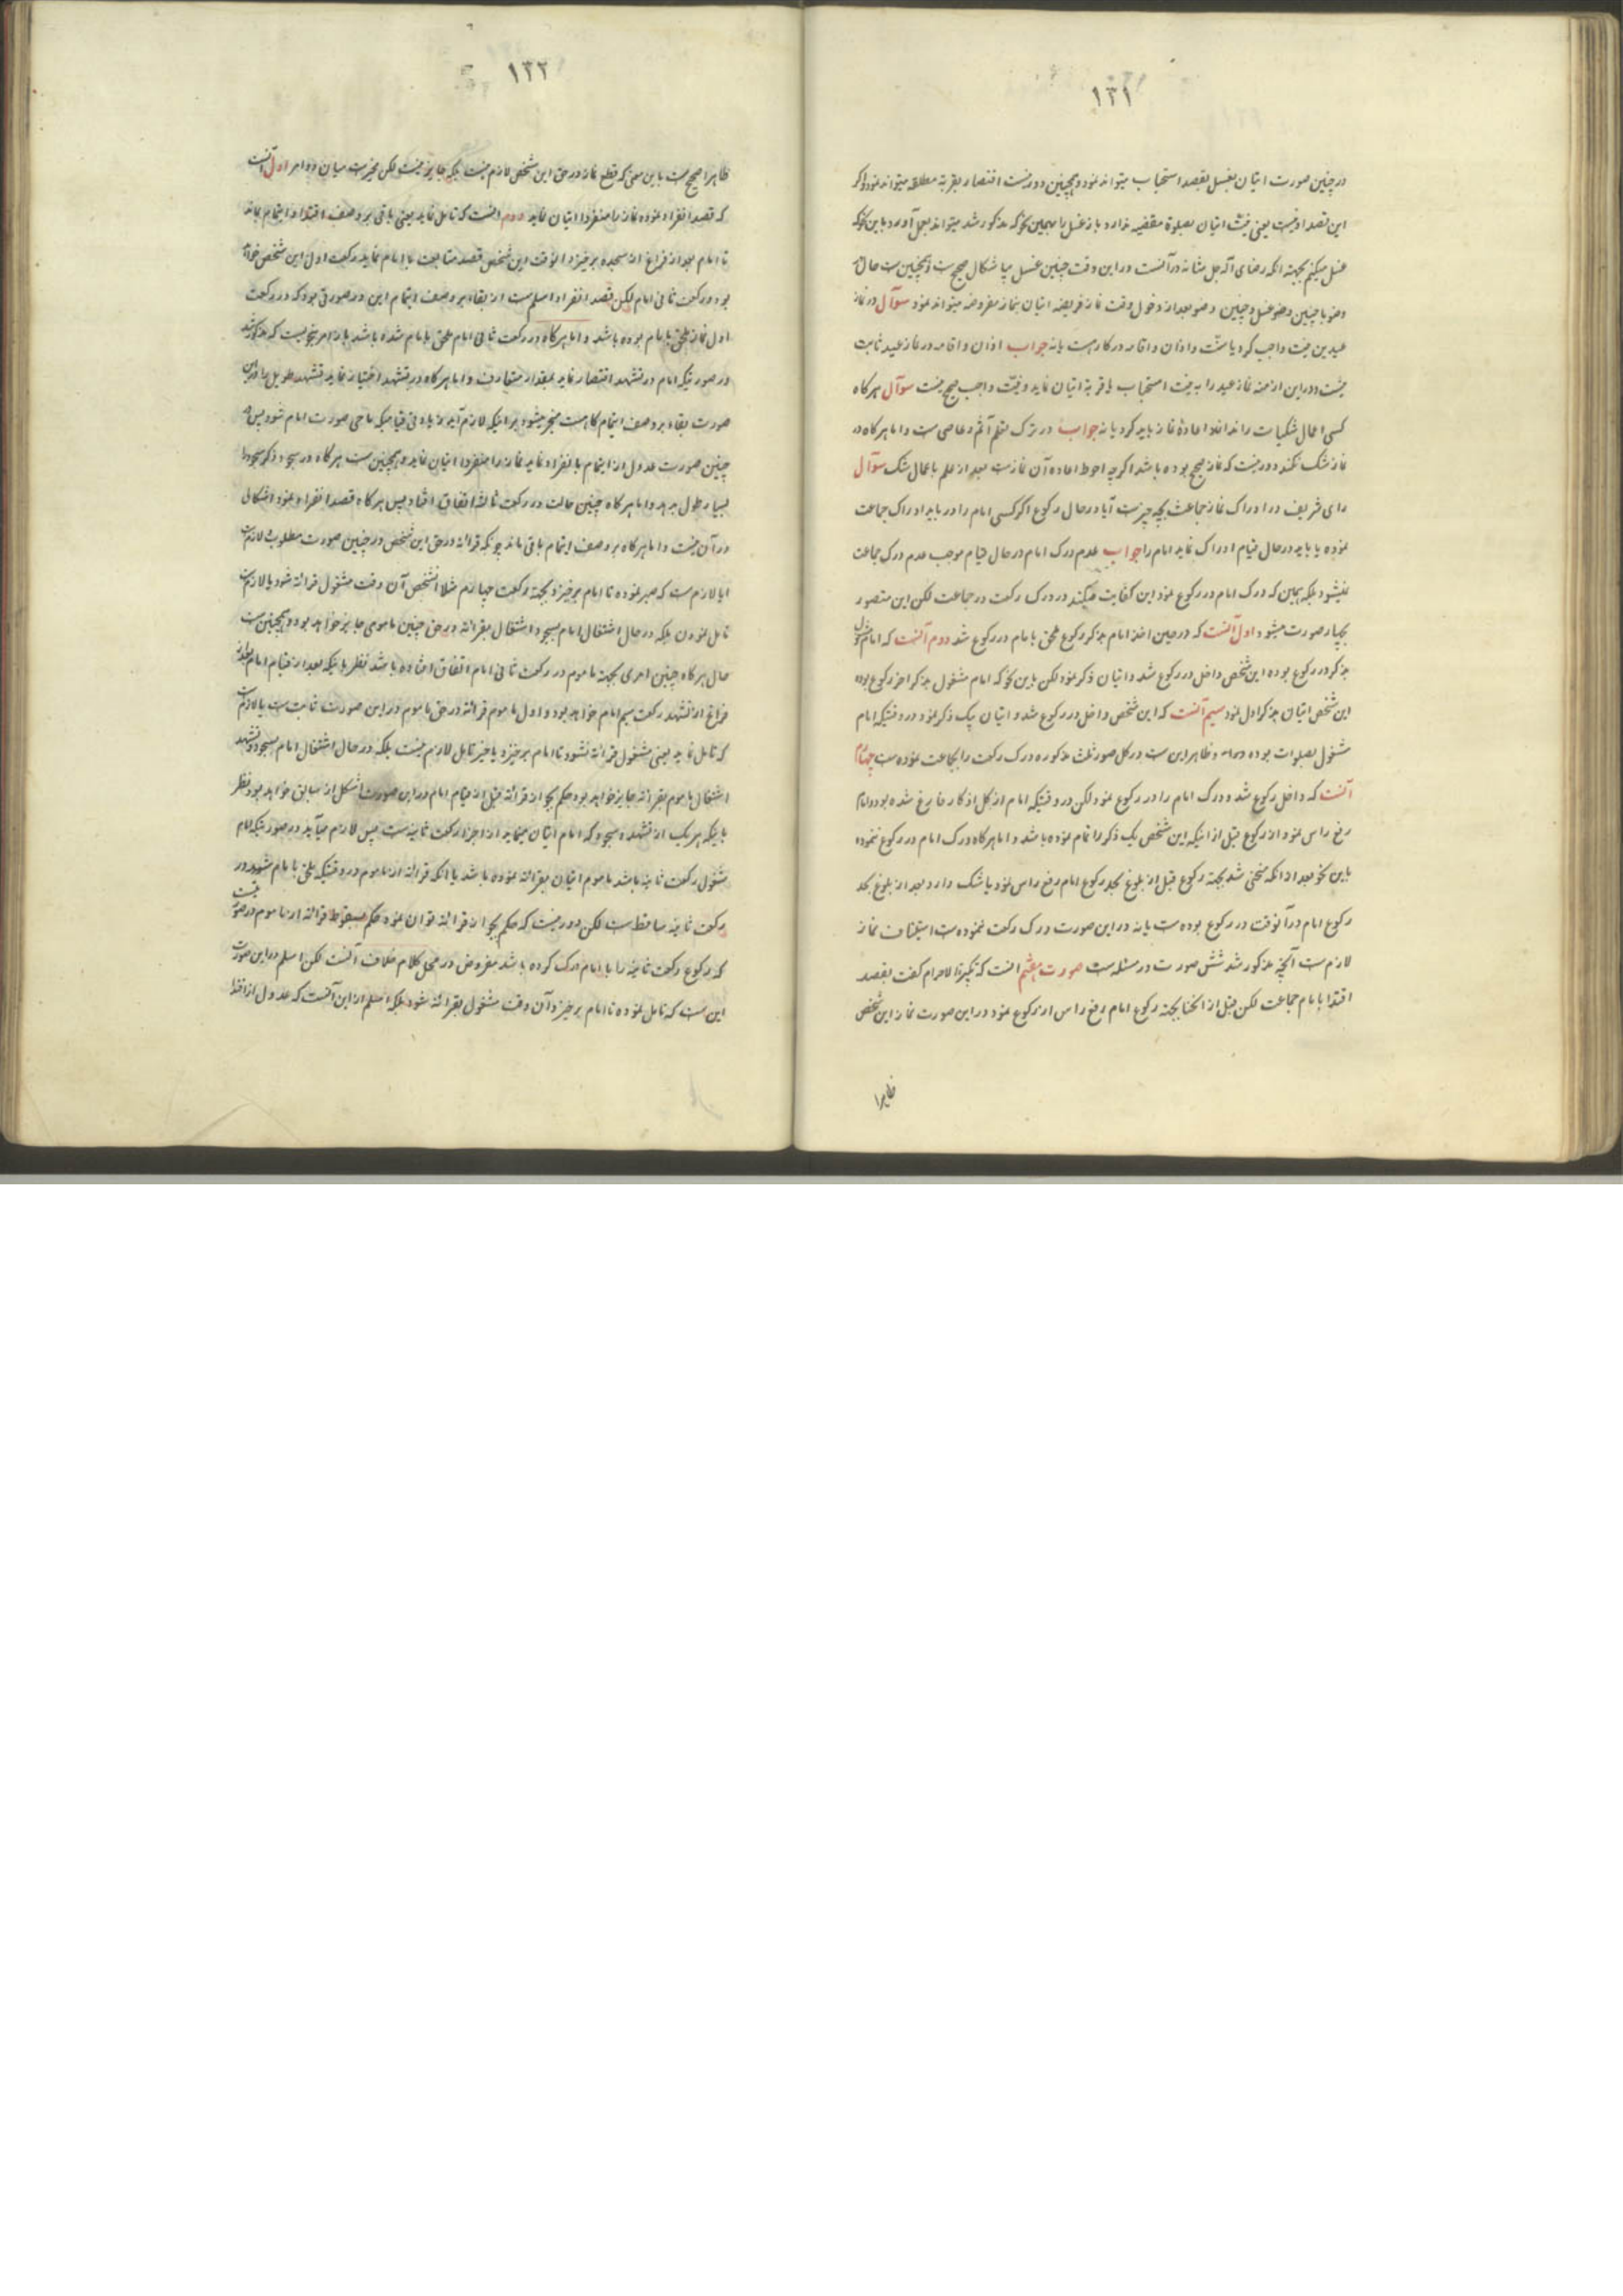 ١٣١
در چنین صورت اتیان بغسل بقصد استحباب میتواند نمود و همچنین دور نیست اقتصار بقربة مطلقه میتواند نمود و اگر
این قصد او نیست یعنی نیت اتیان بصلوة مقضیه ندارد باز غسل را بهمین نحو که مذکور شد میتواند بعمل آورد باین نحو که
غسل میکنم بجهة آنکه رضای اله جل شانه در آنست در این وقت چنین غسل بلا اشکال صحیح است و همچنین است حال
وضو با چنین وضو غسل و چنین وضو بعد از دخول وقت نماز فریضه اتیان بنماز مفروضه میتواند نمود سوآل در نماز
عیدین نیت واجب کرد یا سنّت و اذان و اقامه در کار است یا نه جواب اذان و اقامه در نماز عید ثابت
نیست و در این ازمنه نماز عید را به نیت استحباب یا قربة اتیان نماید و نیّت واجب صحیح نیست سوآل هرگاه
کسی اعمال شکیات را نداند اعادهٔ نماز باید کرد یا نه جواب در ترک تعلم آثم و عاصی است و اما هرگاه در
نماز شک نکند دور نیست که نماز صحیح بوده باشد اگرچه احوط اعاده آن نماز است بعد از علم باعمال شک سوآل
رای شریف در ادراک نماز جماعت بچه چیز است آیا در حال رکوع اگر کسی امام را دریابد ادراک جماعت
نموده یا باید در حال قیام ادراک نماید امام را جواب عدم درک امام در حال قیام موجب عدم درک جماعت
نمیشود بلکه همین که درک امام در رکوع نمود این کفایت میکند در درک رکعت در جماعت لکن این متصور
بچهار صورت میشود اول آنست که در حین اخذ امام بذکر رکوع ملحق بامام در رکوع شد دوم آنست که امام مشغول
بذکر در رکوع بوده این شخص داخل در رکوع شد و اتیان ذکر نمود لکن باین نحو که امام مشغول بذکر اخر رکوع بوده
این شخص اتیان بذکر اول نمود سیم آنست که این شخص داخل در رکوع شد و اتیان بیک ذکر نمود در وقتیکه امام
مشغول بصلوات بوده و ظاهر این است در کل صور ثلث مذکوره درک رکعت را بجماعت نموده است چهارم
آنست که داخل رکوع شد و درک امام را در رکوع نمود لکن در وقتیکه امام از کل اذکار فارغ شده بود و امام
رفع راس نمود از رکوع قبل از اینکه این شخص یک ذکر را تمام نموده باشد و اما هرگاه درک امام در رکوع ننموده
باین نحو بعد از آنکه منحنی شد بجهة رکوع قبل از بلوغ بحد رکوع امام رفع راس نمود یا شک دارد بعد از بلوغ بحد
رکوع امام در آنوقت در رکوع بوده است یا نه در این صورت درک رکعت ننموده است استیناف نماز
لازم است آنچه مذکور شد شش صورت در مسئله است صورت هفتم آنست که تکبیرة الاحرام گفت بقصد
اقتدا بامام جماعت لکن قبل از انحنا بجهة رکوع امام رفع راس از رکوع نمود در این صورت نماز این شخص
ظاهرا
١٣٢
ظاهرا صحیح است باین معنی که قطع نماز در حق این شخص لازم نیست بلکه جایز نیست لکن مخیر است میان دو امر اول آنست
که قصد انفراد نموده نماز را منفردا اتیان نماید دوم آنست که تامل نماید یعنی باقی بر وصف اقتدا و ایتمام بماند
تا امام بعد از فراغ از سجده برخیزد آنوقت این شخص قصد متابعت با امام نماید رکعت اول این شخص خواهد
بود و رکعت ثانی امام لکن قصد انفراد اسلم است از بقاء بر وصف ایتمام این در صورتی بود که در رکعت
اول نماز ملحق بامام بوده باشد و اما هرگاه در رکعت ثانی امام ملحق بامام شده باشد باز امر بنحویست که مذکور شد
در صورتیکه امام در تشهد اقتصار نماید بمقدار متعارف و اما هرگاه در تشهد اختیار نماید تشهد طویل را در این
صورت بقاء بر وصف ایتمام گاه است منجر میشود بر اینکه لازم آید زیادتی قیامیکه ماحی صورت امام شود پس در
چنین صورت عدول از ایتمام بانفراد نماید نماز را منفردا اتیان نماید و همچنین است هرگاه در سجود ذکر سجود را
بسیار طول بدهد و اما هرگاه چنین حالت در رکعت ثالثه اتفاق افتاد پس هرگاه قصد انفراد نمود اشکالی
در آن نیست و اما هرگاه بر وصف ایتمام باقی ماند چونکه قرائة در حق این شخص در چنین صورت مطلوب لازم است
ایا لازم است که صبر نموده تا امام برخیزد بجهة رکعت چهارم مثلا این شخص آن وقت مشغول قرائة شود یا لازم نیست
تامل نمودن بلکه در حال اشتغال امام بسجود اشتغال بقرائة در حق چنین مامومی جایز خواهد بود و همچنین است
حال هرگاه چنین امری بجهة ماموم در رکعت ثانی امام اتفاق افتاده باشد نظر باینکه بعد از قیام امام بعد از
فراغ از تشهد رکعت سیم امام خواهد بود و اول ماموم قرائة در حق ماموم در این صورت ثابت است یا لازم است
که تامل نماید یعنی مشغول قرائة نشود تا امام برخیزد یا خیر تامل لازم نیست بلکه در حال اشتغال امام بسجود و تشهد
اشتغال ماموم بقرائة جایز خواهد بود حکم بجواز قرائة قبل از قیام امام در این صورت اشکل از سابق خواهد بود نظر
باینکه هر یک از تشهد و سجود که امام اتیان مینماید از اجزاء رکعت ثانیه است پس لازم میآید در صورتیکه امام
مشغول رکعت ثانیه باشد ماموم اتیان بقرائة نموده باشد با آنکه قرائة از ماموم در وقتیکه ملحق بامام شود در
رکعت ثانیه ساقط است لکن دور نیست که حکم بجواز قرائة توان نمود حکم بسقوط قرائة از ماموم در صورتیست
که رکوع رکعت ثانیه را با امام درک کرده باشد مفروض در محل کلام خلاف آنست لکن اسلم در این صورت
این است که تامل نموده تا امام برخیزد آن وقت مشغول بقرائة شود بلکه اسلم از این آنست که عدول از اقتدا